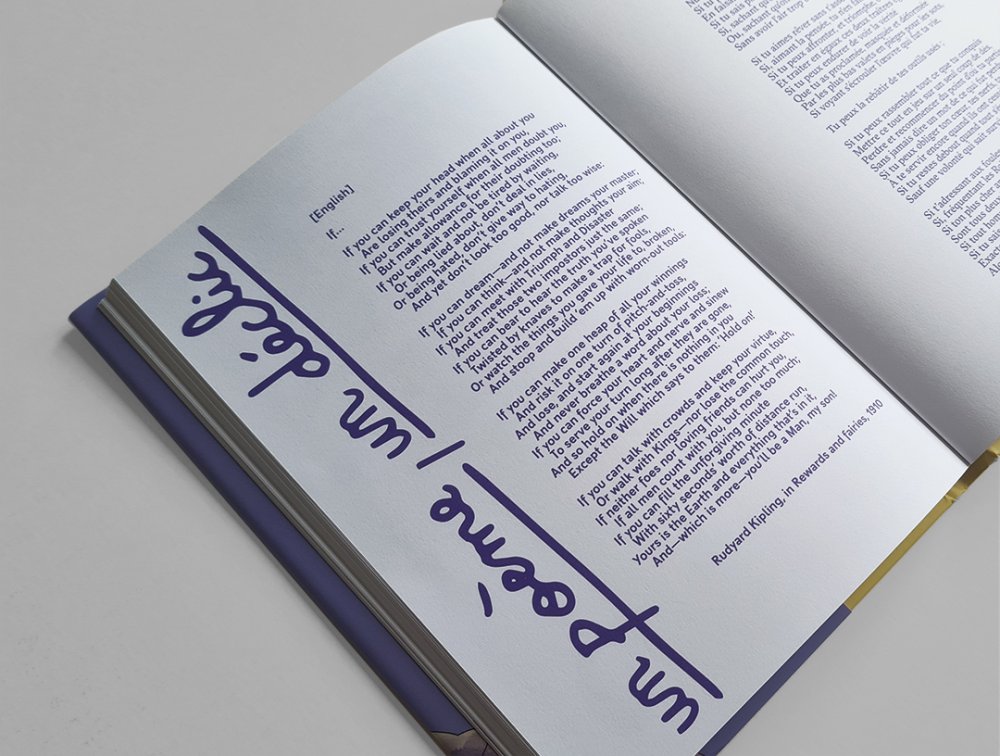 un poème / un déclic
[English]
If...
If you can keep your head when all about you
Are losing theirs and blaming it on you,
If you can trust yourself when all men doubt you,
But make allowance for their doubting too;
If you can wait and not be tired by waiting,
Or being lied about, don't deal in lies,
Or being hated, don't give way to hating,
And yet don't look too good, nor talk too wise:
If you can dream—and not make dreams your master;
If you can think—and not make thoughts your aim;
If you can meet with Triumph and Disaster
And treat those two impostors just the same;
If you can bear to hear the truth you've spoken
Twisted by knaves to make a trap for fools,
Or watch the things you gave your life to, broken,
And stoop and build 'em up with worn-out tools:
If you can make one heap of all your winnings
And risk it on one turn of pitch-and-toss,
And lose, and start again at your beginnings
And never breathe a word about your loss;
If you can force your heart and nerve and sinew
To serve your turn long after they are gone,
And so hold on when there is nothing in you
Except the Will which says to them: 'Hold on!'
If you can talk with crowds and keep your virtue,
Or walk with Kings—nor lose the common touch,
If neither foes nor loving friends can hurt you,
If all men count with you, but none too much;
If you can fill the unforgiving minute
With sixty seconds' worth of distance run,
Yours is the Earth and everything that's in it,
And—which is more—you'll be a Man, my son!
Rudyard Kipling, in Rewards and fairies, 1910
En faisant
Si tu sais
Si, sachant qu'on
Ou, sachant qu'on
Sans avoir l'air trop
Si tu aimes rêver sans
Si, aimant la pensée, tu n'en
Si tu peux affronter, et triomphe,
Et traiter en égaux ces deux traîtres
Si tu peux endurer de voir la vérité
Que tu as proclamée, masquée et déformée
Par les plus bas valets en pièges pour les sots,
Si voyant s'écrouler l'œuvre qui fut ta vie,
Tu peux la rebâtir de tes outils usés ;
Si tu peux rassembler tout ce que tu conquis
Mettre ce tout en jeu sur un seul coup de dés,
Perdre et recommencer du point d'où tu
Sans jamais dire un mot de ce qui fut
Si tu peux obliger ton cœur, tes nerfs,
A te servir encore quand ils ont
Si tu restes debout quand tout
Sauf une volonté qui
Si t'adressant aux foules
Si, fréquentant les
Si ton plus cher
Sont tous
Si tout
Si tu sais